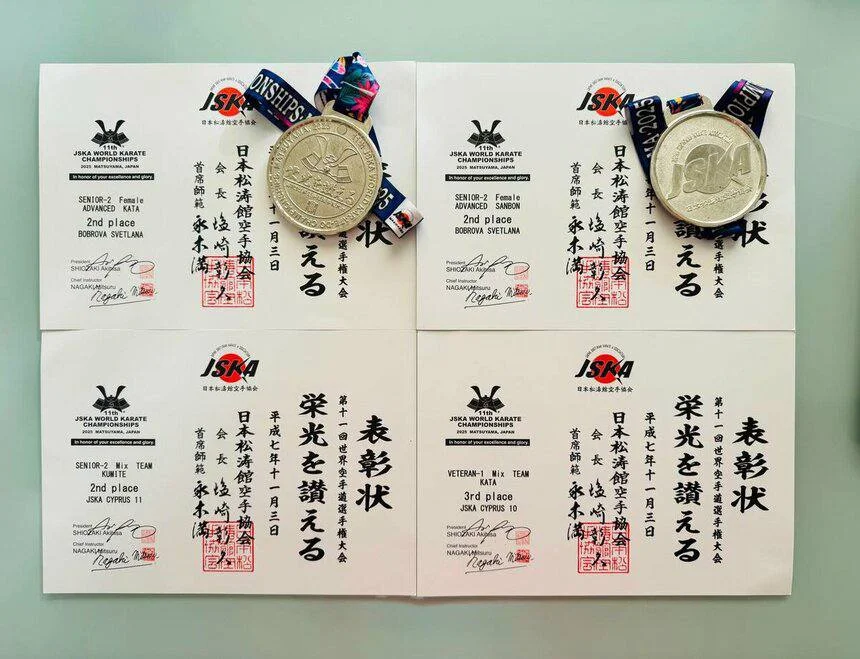 JSKA
日本松涛館空手協会
11th
JSKA WORLD KARATE
CHAMPIONSHIPS
2025 MATSUYAMA, JAPAN
In honor of your excellence and glory.
SENIOR-2 Female
ADVANCED KATA
2nd place
BOBROVA SVETLANA
President
SHIOZAKI Akihisa
Chief Instructor
NAGAKI Mitsuru
Nagaki Mitsuru
状
讃える
選手権大会
十一月三日
日本松涛館空手協会
会長
首席師範
ONSHIPS
2025
JSKA
JSKA
日本松涛館空手協会
11th
JSKA WORLD KARATE
CHAMPIONSHIPS
2025 MATSUYAMA, JAPAN
In honor of your excellence and glory.
SENIOR-2 Female
ADVANCED SANBON
2nd place
BOBROVA SVETLANA
President
SHIOZAKI Akihisa
Chief Instructor
NAGAKI Mitsuru
Nagaki Mitsuru
状
讃える
道選手権大会
十一月三日
日本松涛館空手協会
会長
首席師範
2025
JSKA
JSKA
日本松涛館空手協会
11th
JSKA WORLD KARATE
CHAMPIONSHIPS
2025 MATSUYAMA, JAPAN
In honor of your excellence and glory.
SENIOR-2 Mix TEAM
KUMITE
2nd place
JSKA CYPRUS 11
President
SHIOZAKI Akihisa
Chief Instructor
NAGAKI Mitsuru
Nagaki Mitsuru
表彰状
第十一回世界空手道選手権大会
栄光を讃える
平成七年十一月三日
日本松涛館空手協会
会長
首席師範
JSKA
日本松涛館空手協会
11th
JSKA WORLD KARATE
CHAMPIONSHIPS
2025 MATSUYAMA, JAPAN
In honor of your excellence and glory.
VETERAN-1 Mix TEAM
KATA
3rd place
JSKA CYPRUS 10
President
SHIOZAKI Akihisa
Chief Instructor
NAGAKI Mitsuru
Nagaki Mitsuru
表彰状
第十一回世界空手道選手権大会
栄光を讃える
平成七年十一月三日
日本松涛館空手協会
会長
首席師範